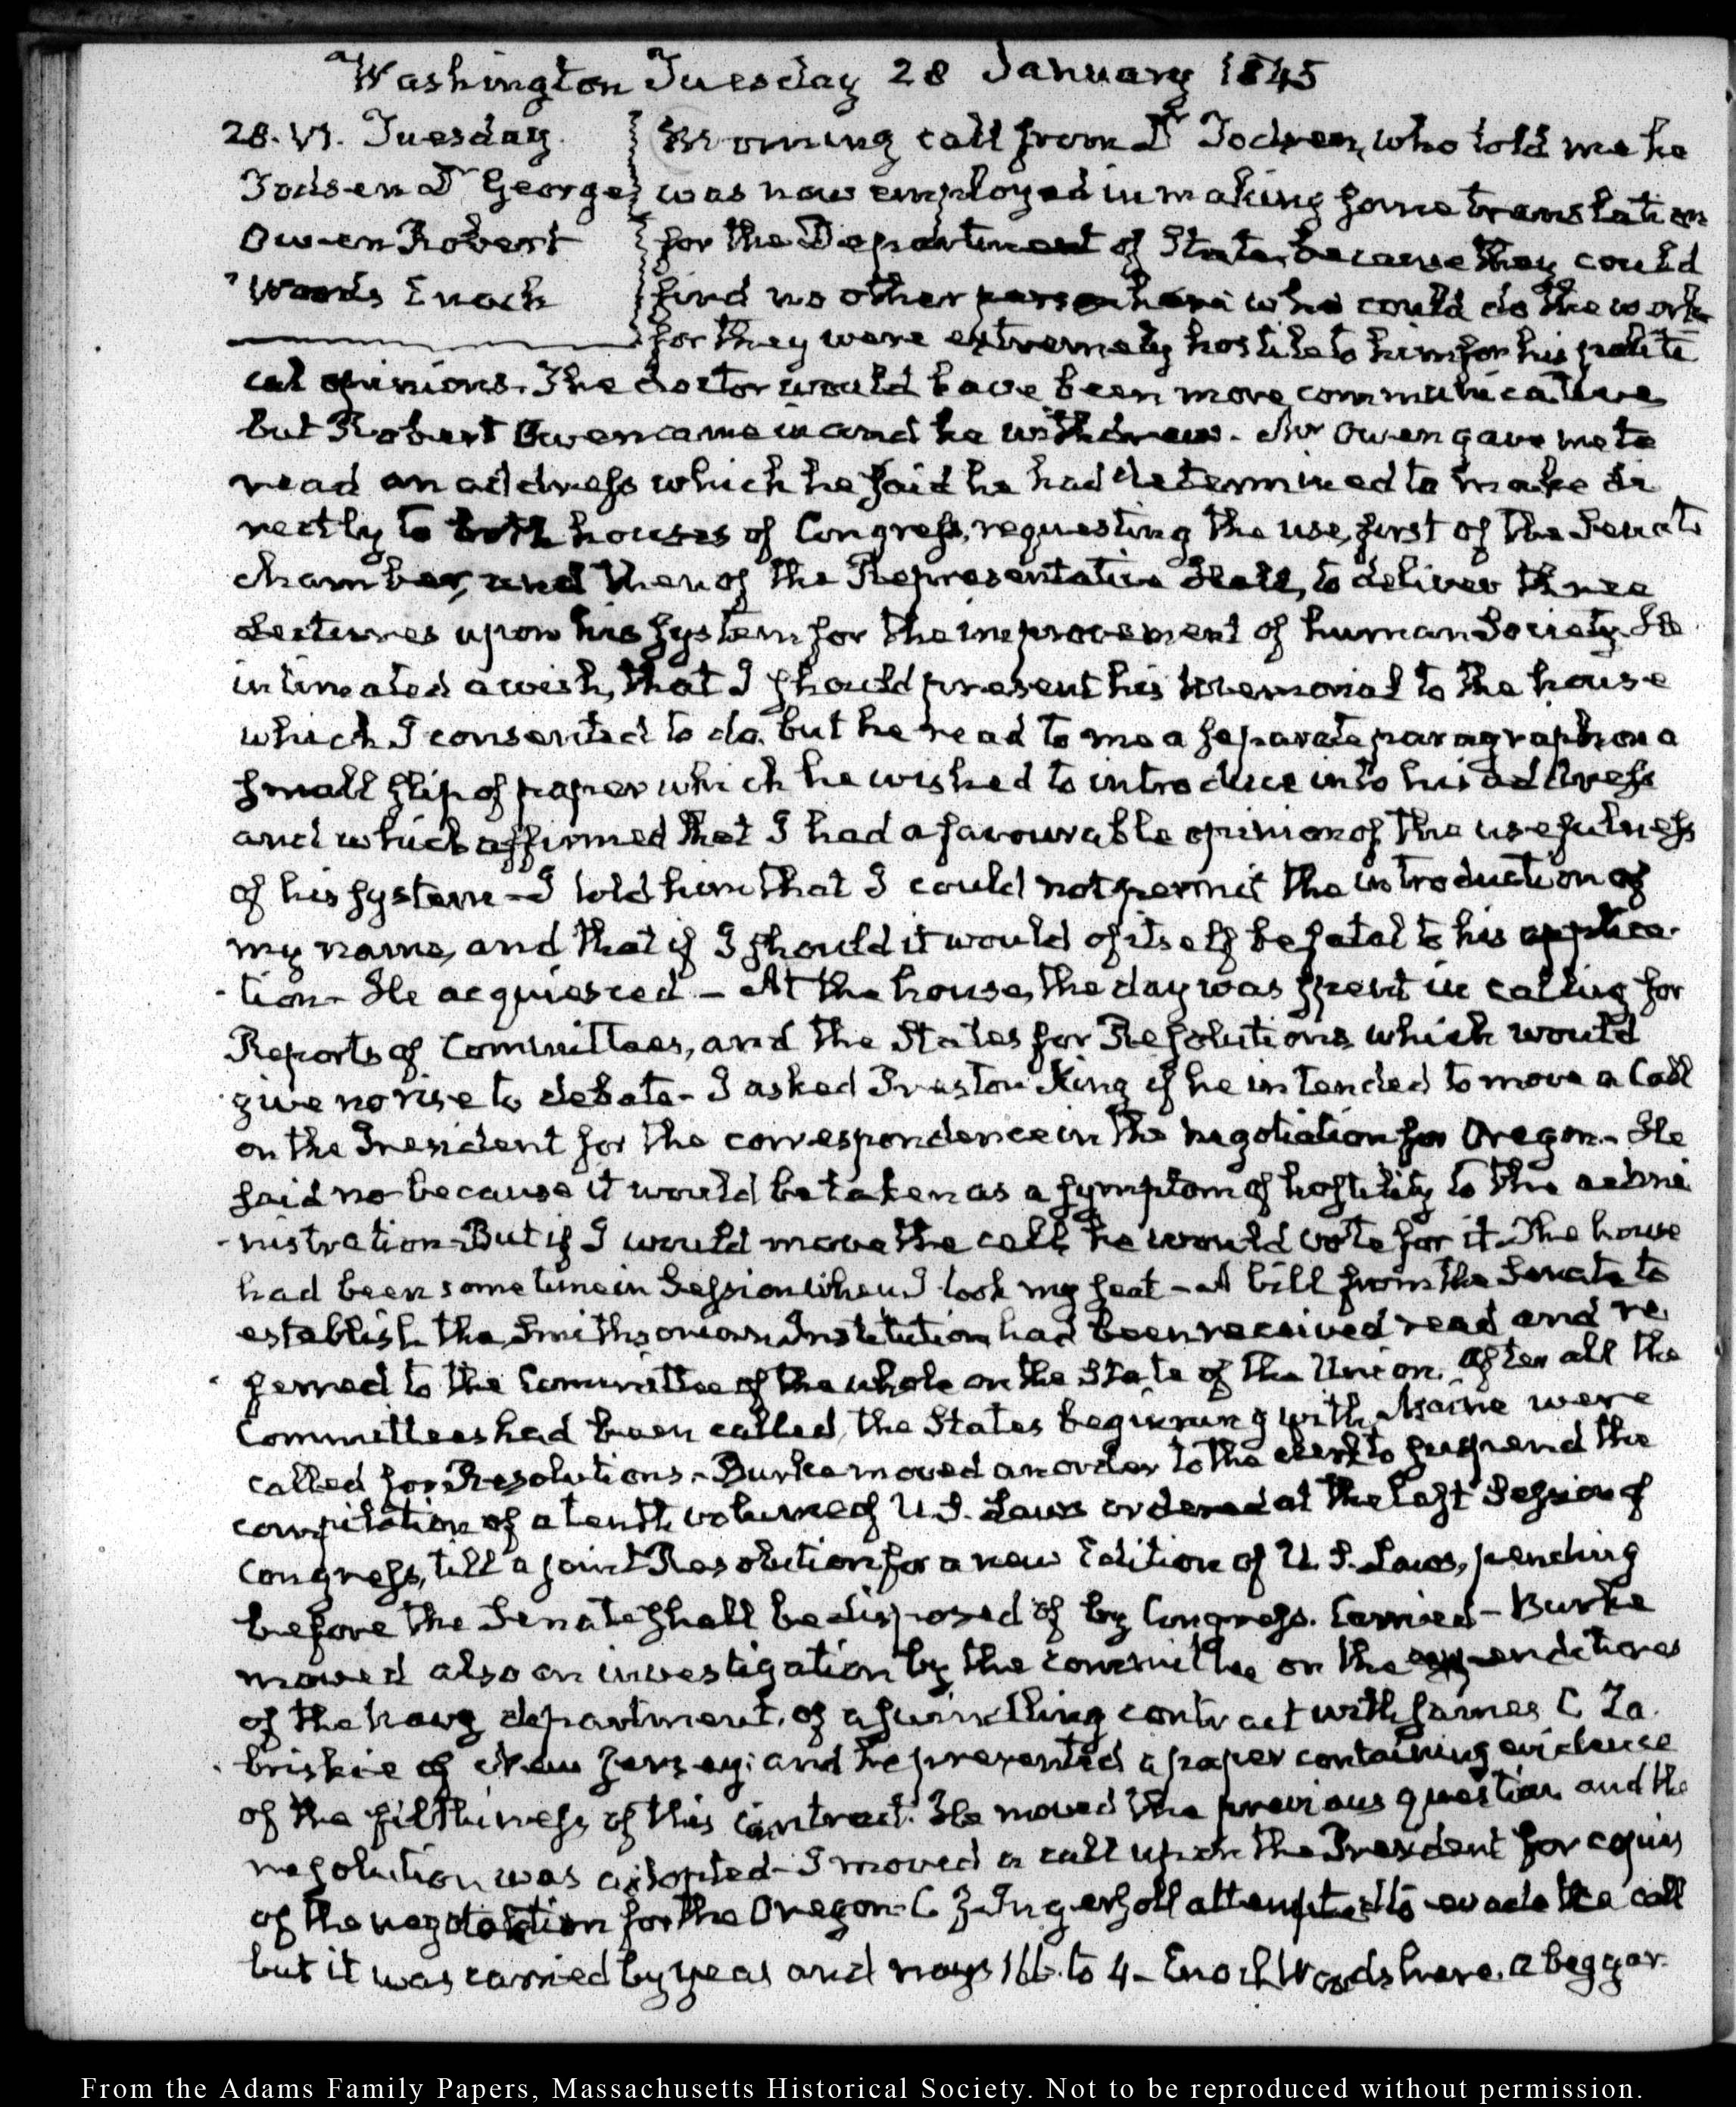 Washington Tuesday 28 January 1845
28. VI. Tuesday
Todsen Dr George
Owen Robert
Woods Enoch
Morning call from Dr Todsen, who told me he
was now employed in making some translation
for the Department of State, because they could
find no other person here who could do the work
for they were extremely hostile to him for his politi
cal opinions. The doctor would have been more communicative
but Robert Owen came in and he withdrew. Mr Owen gave me to
read an address which he said he had determined to make di
rectly to both houses of Congress, requesting the use, first of the Senate
chamber, and then of the Representative Hall, to deliver three
Lectures upon his system for the improvement of human Society. He
intimated a wish, that I should present his memorial to the house
which I consented to do. but he read to me a separate paragraph on a
small slip of paper which he wished to introduce into his address
and which affirmed that I had a favourable opinion of the usefulness
of his system - I told him that I could not permit the introduction of
my name, and that if I should it would of itself be fatal to his applica-
tion - He acquiesced - At the house, the day was spent in calling for
Reports of Committees, and the States for Resolutions which would
give no rise to debate - I asked Preston King if he intended to move a Call
on the President for the correspondence in the negotiation for Oregon - He
said no because it would be taken as a symptom of hostility to the admi
nistration - But if I would move the call, he would vote for it. The house
had been some time in Session when I took my seat - A bill from the Senate to
establish the Smithsonian Institution had been received read and re
ferred to the Committee of the whole on the State of the Union. After all the
Committees had been called, the States beginning with Maine were
called for Resolutions. Burke moved an order to the clerk to suspend the
compilation of a tenth volume of U.S. Laws ordered at the last Session of
Congress, till a joint Resolution for a new Edition of U.S. Laws, pending
before the Senate shall be disposed of by Congress. Carried - Burke
moved also an investigation by the committee on the expenditures
of the navy department, of a swindling contract with James C Za
briskie of New Jersey; and he presented a paper containing evidence
of the filthiness of this contract. He moved the previous question and the
resolution was adopted - I moved a call upon the President for copies
of the negotiation for the Oregon - C. J. Ingersoll attempted to evade the call
but it was carried by yeas and nays 166 to 4 - Enoch Woods here. a beggar.
From the Adams Family Papers, Massachusetts Historical Society. Not to be reproduced without permission.